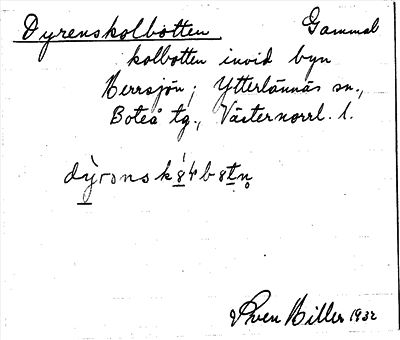 Dyrenskolbotten. Gammal
kolbotten invid byn
Herrsjön; Ytterlännäs sn.,
Boteå tg., Västernorrl. l.
dỳrənsk
Sven Hiller 1932